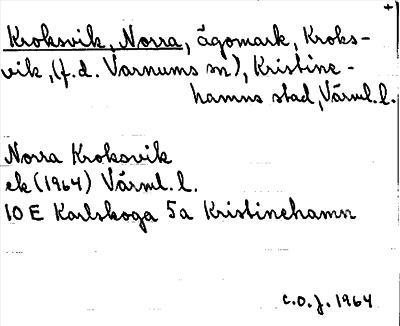 +
Kroksvik, Norra, ägomark, Kroks-
vik, (f.d. Varnums sn), Kristine-
hamns stad, Värml. l.
Norra Kroksvik
ek (1964) Värml. l.
10 E Karlskoga 5a Kristinehamn
C.O.J. 1964